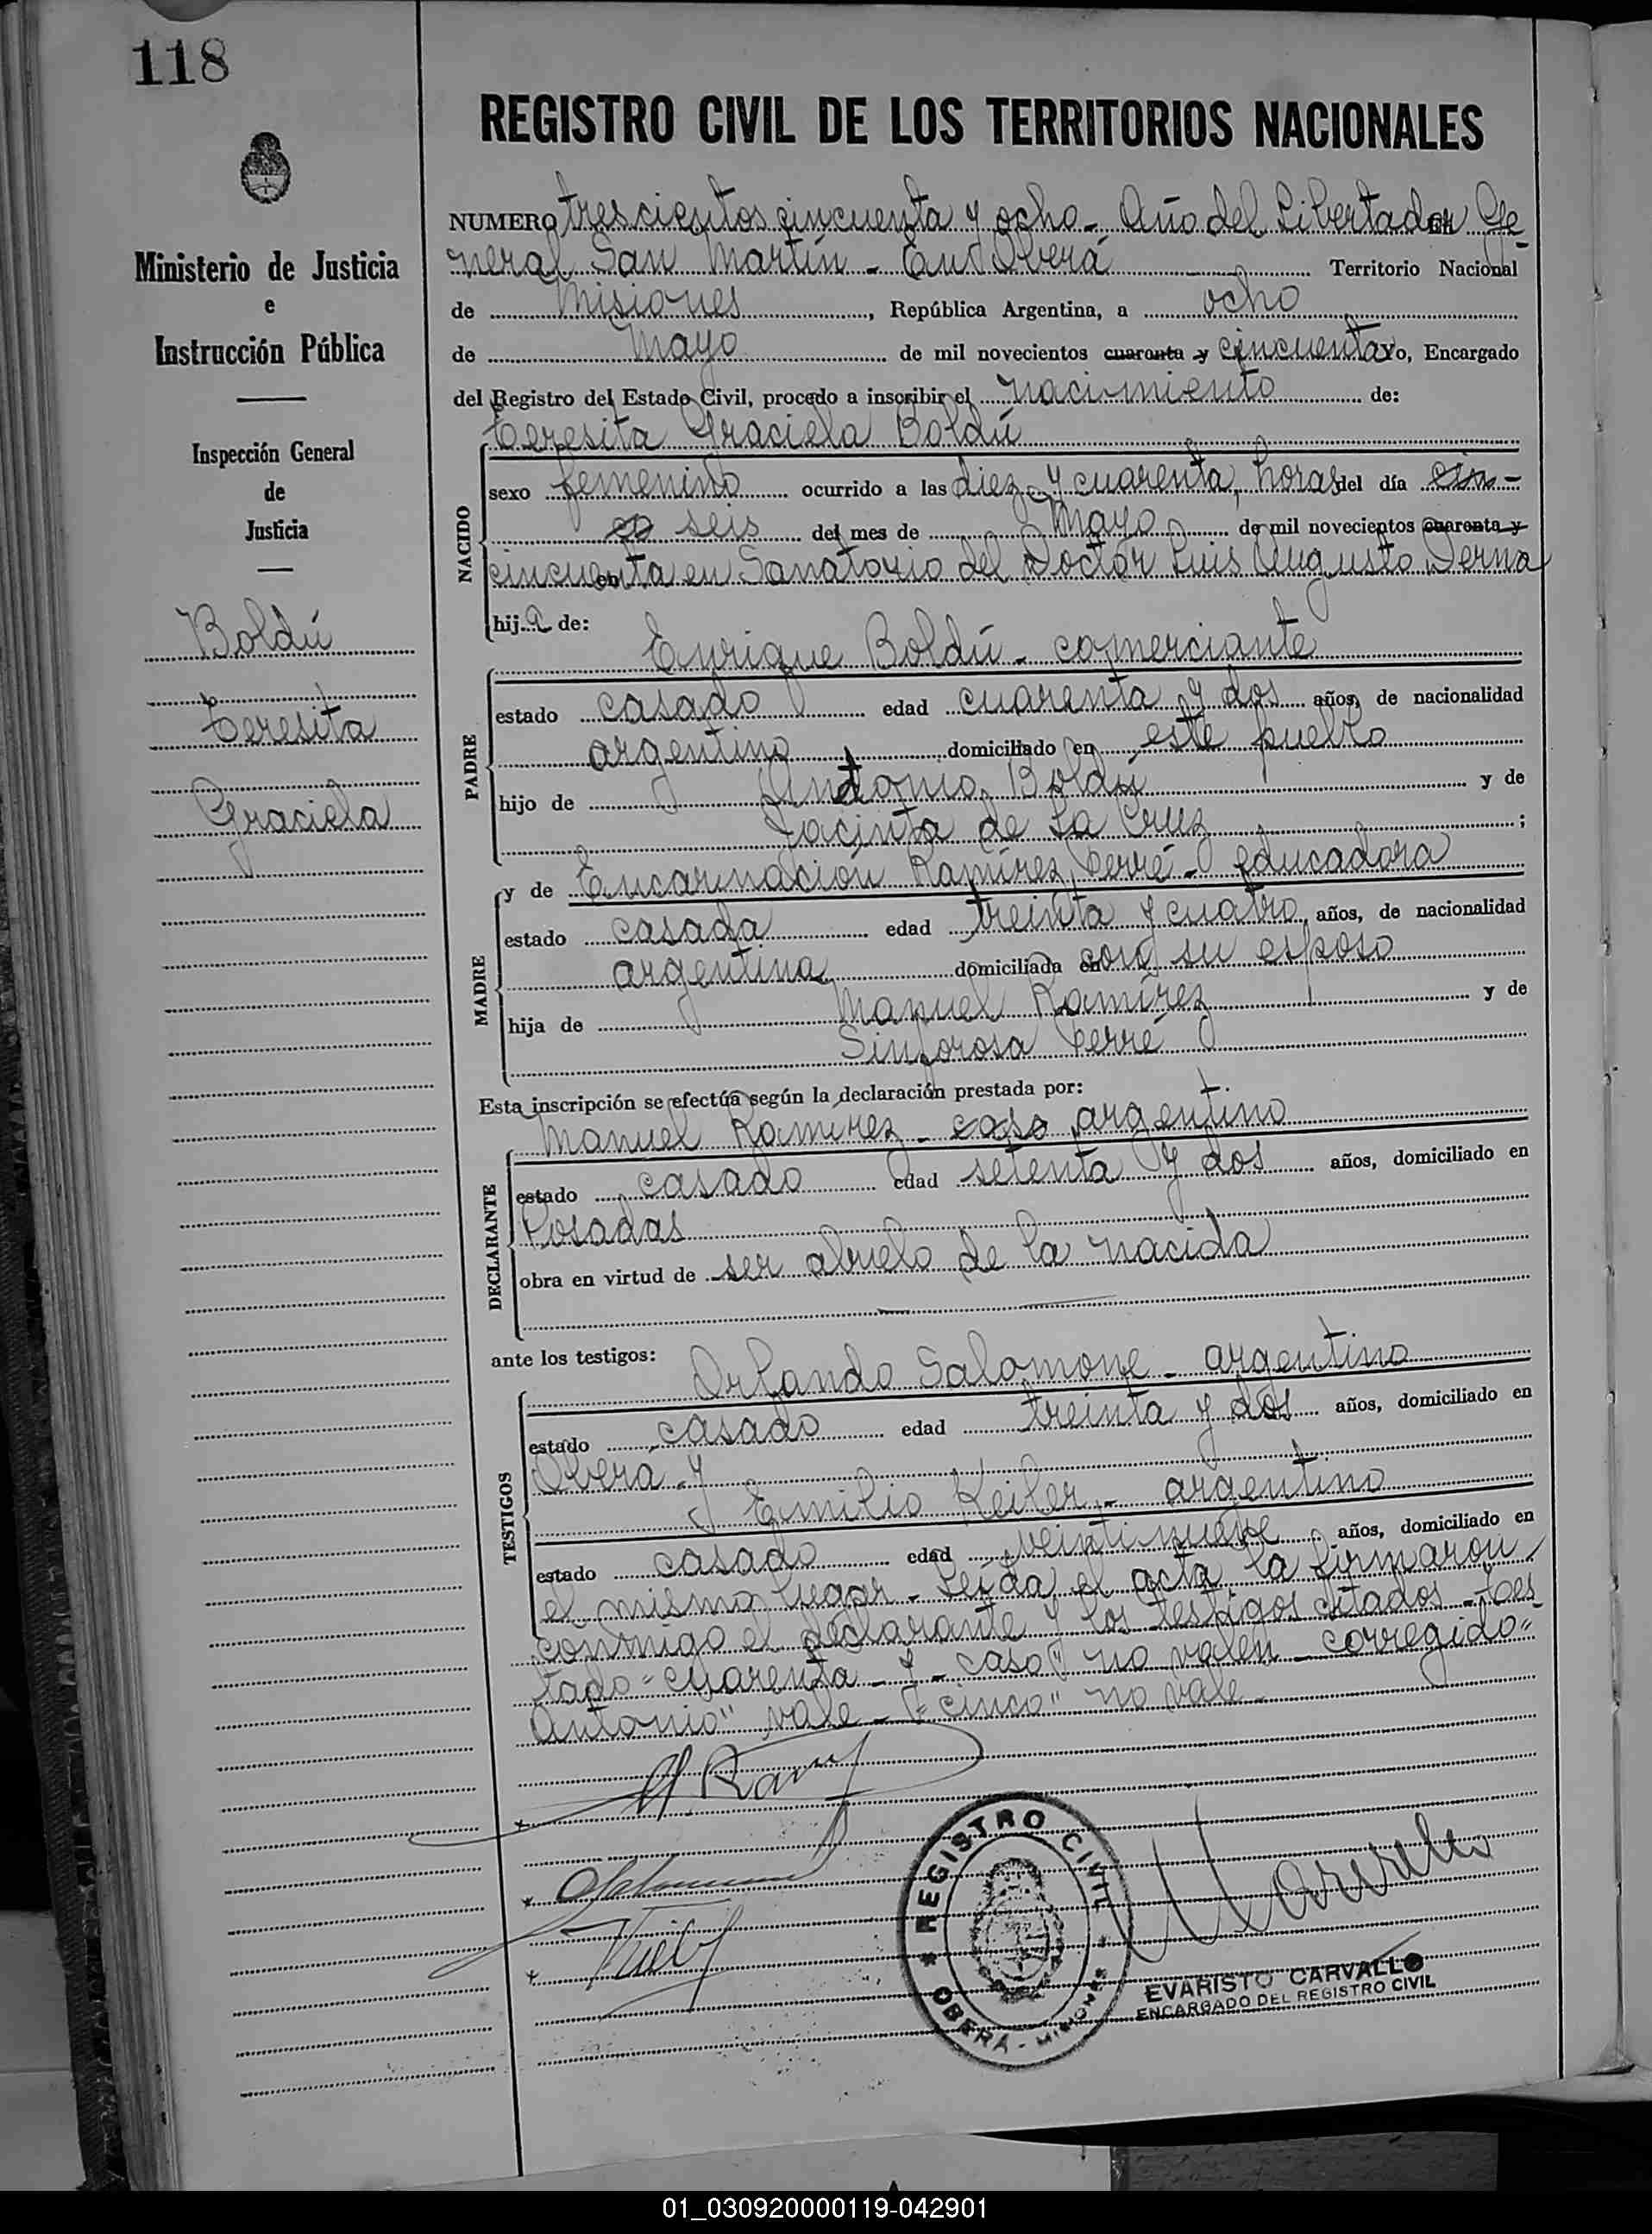 118
REGISTRO CIVIL DE LOS TERRITORIOS NACIONALES
Ministerio de Justicia
e
Instrucción Pública
Inspección General
de
Justicia
Boldú
Teresita
Graciela
NUMERO trescientos cincuenta y ocho - Año del Libertador Ge-
neral San Martín - En Oberá Territorio Nacional
de Misiones, República Argentina, a ocho
de Mayo de mil novecientos cuarenta y cincuenta Yo, Encargado
del Registro del Estado Civil, procedo a inscribir el nacimiento de:
Teresita Graciela Boldú
NACIDO
sexo femenino ocurrido a las diez y cuarenta, horas del día cin-
co seis del mes de Mayo de mil novecientos cuarenta y
cincuenta en Sanatorio del Doctor Luis Augusto Derna
hija de:
PADRE
Enrique Boldú - comerciante
estado casado edad cuarenta y dos años, de nacionalidad
argentino domiciliado en este pueblo
hijo de Antonio Boldú y de
Jacinta de La Cruz ;
MADRE
y de Encarnación Ramírez Ferré - educadora
estado casada edad treinta y cuatro años, de nacionalidad
argentina domiciliada en con su esposo
hija de Manuel Ramírez y de
Sinforosa Ferré
Esta inscripción se efectúa según la declaración prestada por:
DECLARANTE
Manuel Ramírez - caso argentino
estado casado edad setenta y dos años, domiciliado en
Posadas
obra en virtud de ser abuelo de la nacida
ante los testigos:
TESTIGOS
Orlando Salomone - argentino
estado casado edad treinta y dos años, domiciliado en
Oberá - y
Emilio Keiler - argentino
estado casado edad veintinueve años, domiciliado en
el mismo lugar - Leída el acta la firmaron
conmigo el declarante y los testigos citados - Tes-
tado "cuarenta - y - caso" no valen - corregido "
Antonio" vale - "cinco" no vale -
M. Ramí
REGISTRO CIVIL
OBERA - MISIONES
EVARISTO CARVALLO
ENCARGADO DEL REGISTRO CIVIL
01_030920000119-042901